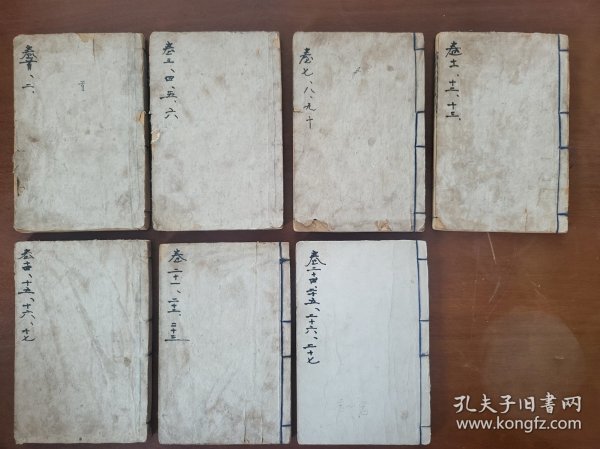 卷首、二、
卷三、四、五、六
卷七、八、九、十
卷十一、十二、十三、
卷十四、十五、十六、十七
卷二十一、二十二、二十三
卷二十四、二十五、二十六、二十七
孔夫子旧書网
www.kongfz.com